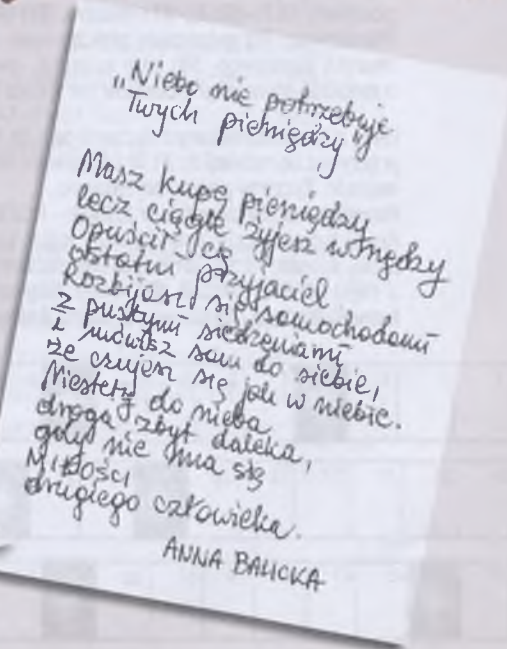 „Niebo nie potrzebuje
Twych pieniędzy"
Masz kupę pieniędzy
lecz ciągle żyjesz w nędzy
Opuścił cę
ostatni przyjaciel
Rozbijasz się samochodami
z pustymi siedzeniami
i mówisz sam do siebie,
że czujesz się jak w niebie.
Niestety do nieba
droga zbyt daleka,
gdy nie ma się
Miłości
drugiego człowieka.
ANNA BALICKA